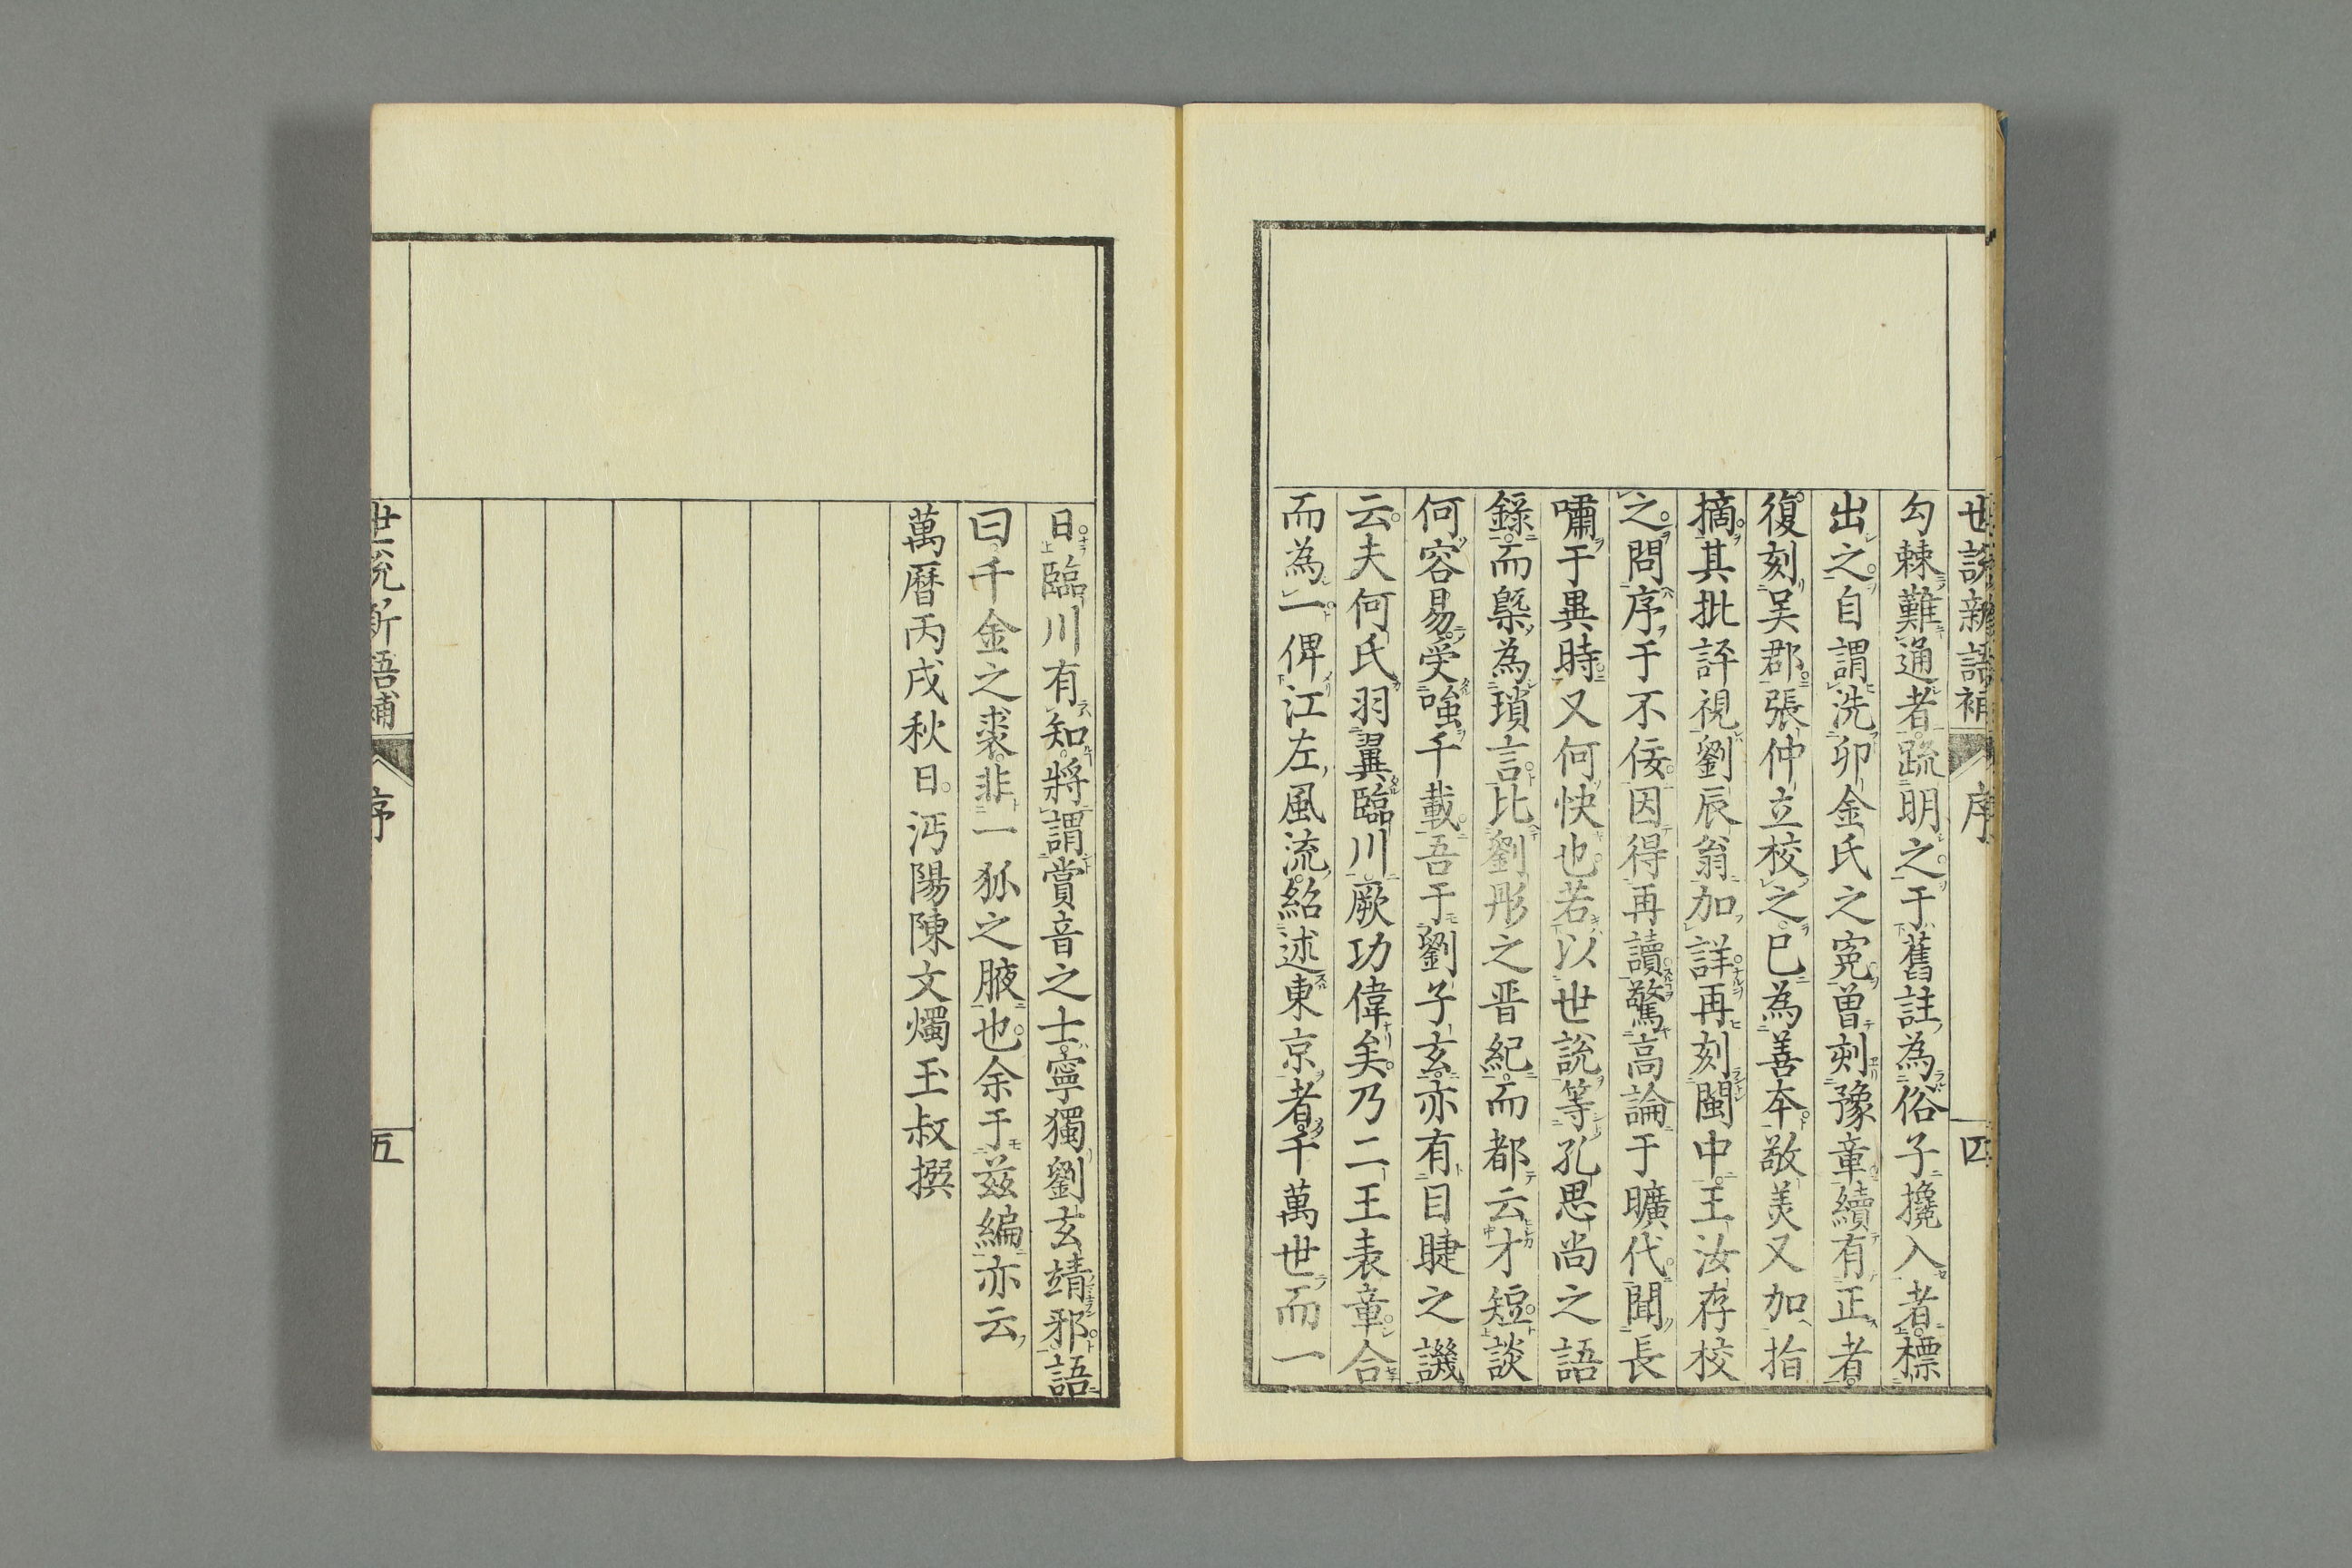 世說新語補 序 四
勾棘難通者疏明之于舊註為俗子攙入者標
出之自謂洗卯金氏之寃曾刾豫章續有正者
復刻吴郡張仲立校之已為善本敬美又加指
摘其批評視劉辰翁加詳再刻閩中王汝存校
之問序于不佞因得再讀驚高論于曠代聞長
嘯于異時又何快也若以世說等孔思尚之語
錄而槩為瑣言比劉彤之晋紀而都云才短談
何容易受嗤千載吾于劉子玄亦有目睫之譏
云夫何氏羽翼臨川厥功偉矣乃二王表章合
而為一俾江左風流紹述東京者千萬世而一
日臨川有知將謂賞音之士寧獨劉玄靖邪語
曰千金之裘非一狐之腋也余于兹編亦云
萬曆丙戌秋日沔陽陳文燭玉叔撰
世說新語補 序 五